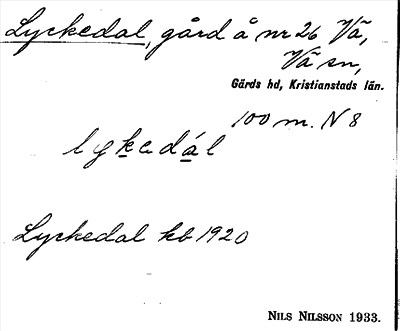 Lyckedal, gård å nr 26 Vä,
Vä sn,
Gärds hd, Kristianstads län.
100 m. N 8
lykedál
Lyckedal kb 1920
NILS NILSSON 1933.